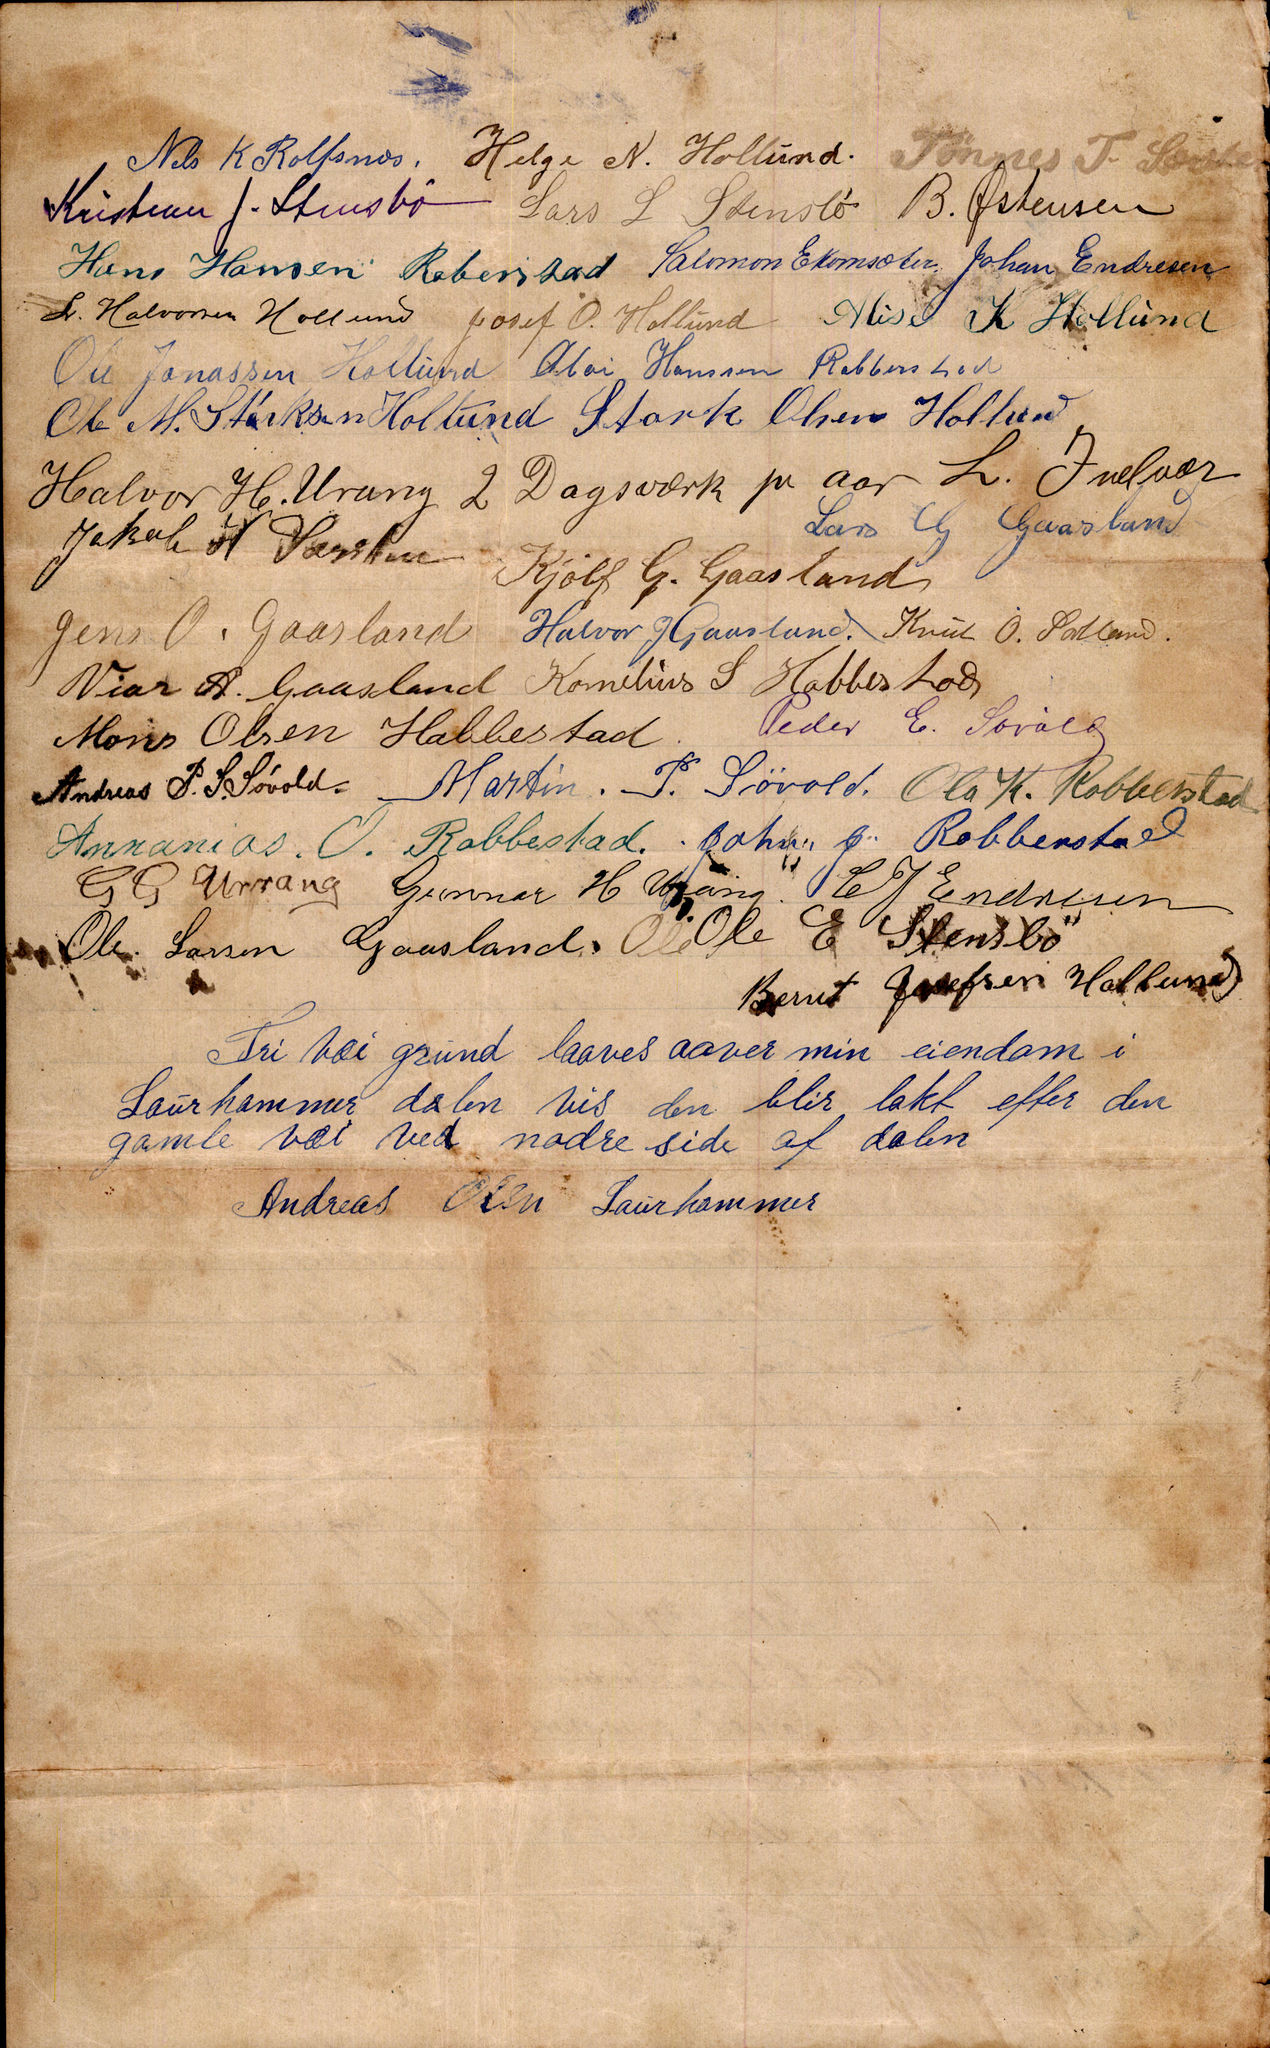 Nils K Rolfsnes. Helge N. Hollund. Tönnes T.
Kristian J. Stensbö Lars L Stensbö B. Østensen
Hans Hansen Roberstad Salomon Ekornsæter Johan Endresen
L. Halvorsen Hollund Josef O. Hollund Misé K Hollund
Ole Jonassen Hollund Abai Hanssen Robberstad
Ole M. Störksen Hollund Stork Olsen Hollund
Halvor H. Urang 2 Dagsværk pr aar L. Indvær
Lars G Gaasland
Jakob H
Kjölf G. Gaasland
Jens O. Gaasland Halvor J Gaasland. Knut O. Sælland.
Viar A. Gaasland Kornelius S Habbestad
Mons Olsen Habbestad. Peder E. Sövold
Andreas P. S. Sövold. Martin. P. Sövold. Ola K. Robberstad
Annanias. O. Robbestad. John J. Robberstad
G G Urrang Gunnar H Urang C J Endresen
Ole Larsen Gaasland. Ole Ole E Stensbö
Bernt Josefsen Hollund
Fri væi grund laaves aaver min eiendom i
Saurhammer dalen vis den blir lakt efter den
gamle væi ved nodre side af dalen
Andreas Olsn Saurhammer